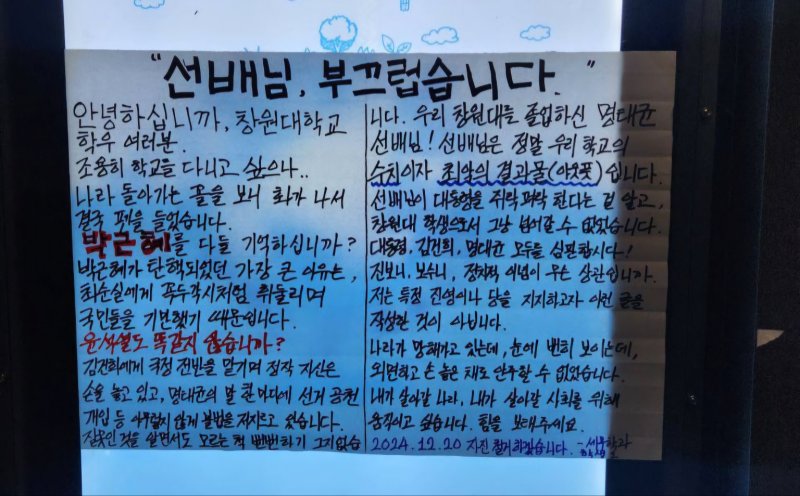 "선배님, 부끄럽습니다."
안녕하십니까, 창원대학교
학우 여러분.
조용히 학교를 다니고 싶으나..
나라 돌아가는 꼴을 보니 화가 나서
결국 펜을 들었습니다.
박근혜를 다들 기억하십니까?
박근혜가 탄핵되었던 가장 큰 이유는,
최순실에게 꼭두각시처럼 휘둘리며
국민들을 기만했기 때문입니다.
윤석열도 똑같지 않습니까?
김건희에게 국정 전반을 맡기며 정작 자신은
손을 놓고 있고, 명태균의 말 한마디에 선거 공천
개입 등 아무렇지 않게 불법을 저지르고 있습니다.
잘못인 것을 알면서도 모르는 척 뻔뻔하기 그지없습
니다. 우리 창원대를 졸업하신 명태균
선배님! 선배님은 정말 우리 학교의
수치이자 최악의 결과물(아웃풋)입니다.
선배님이 대통령을 쥐락펴락 한다는 걸 알고,
창원대 학생으로서 그냥 넘어갈 수 없었습니다.
대통령, 김건희, 명태균 모두를 심판합시다!
진보니, 보수니, 정치적 이념이 무슨 상관입니까.
저는 특정 진영이나 당을 지지하고자 이런 글을
작성한 것이 아닙니다.
나라가 망해가고 있는데, 눈에 뻔히 보이는데,
외면하고 손 놓은 채로 안주할 수 없었습니다.
내가 살아갈 나라, 내가 살아갈 사회를 위해
움직이고 싶습니다. 힘을 보태주세요.
2024.12.20 자진 철거하겠습니다. -세무학과
학생